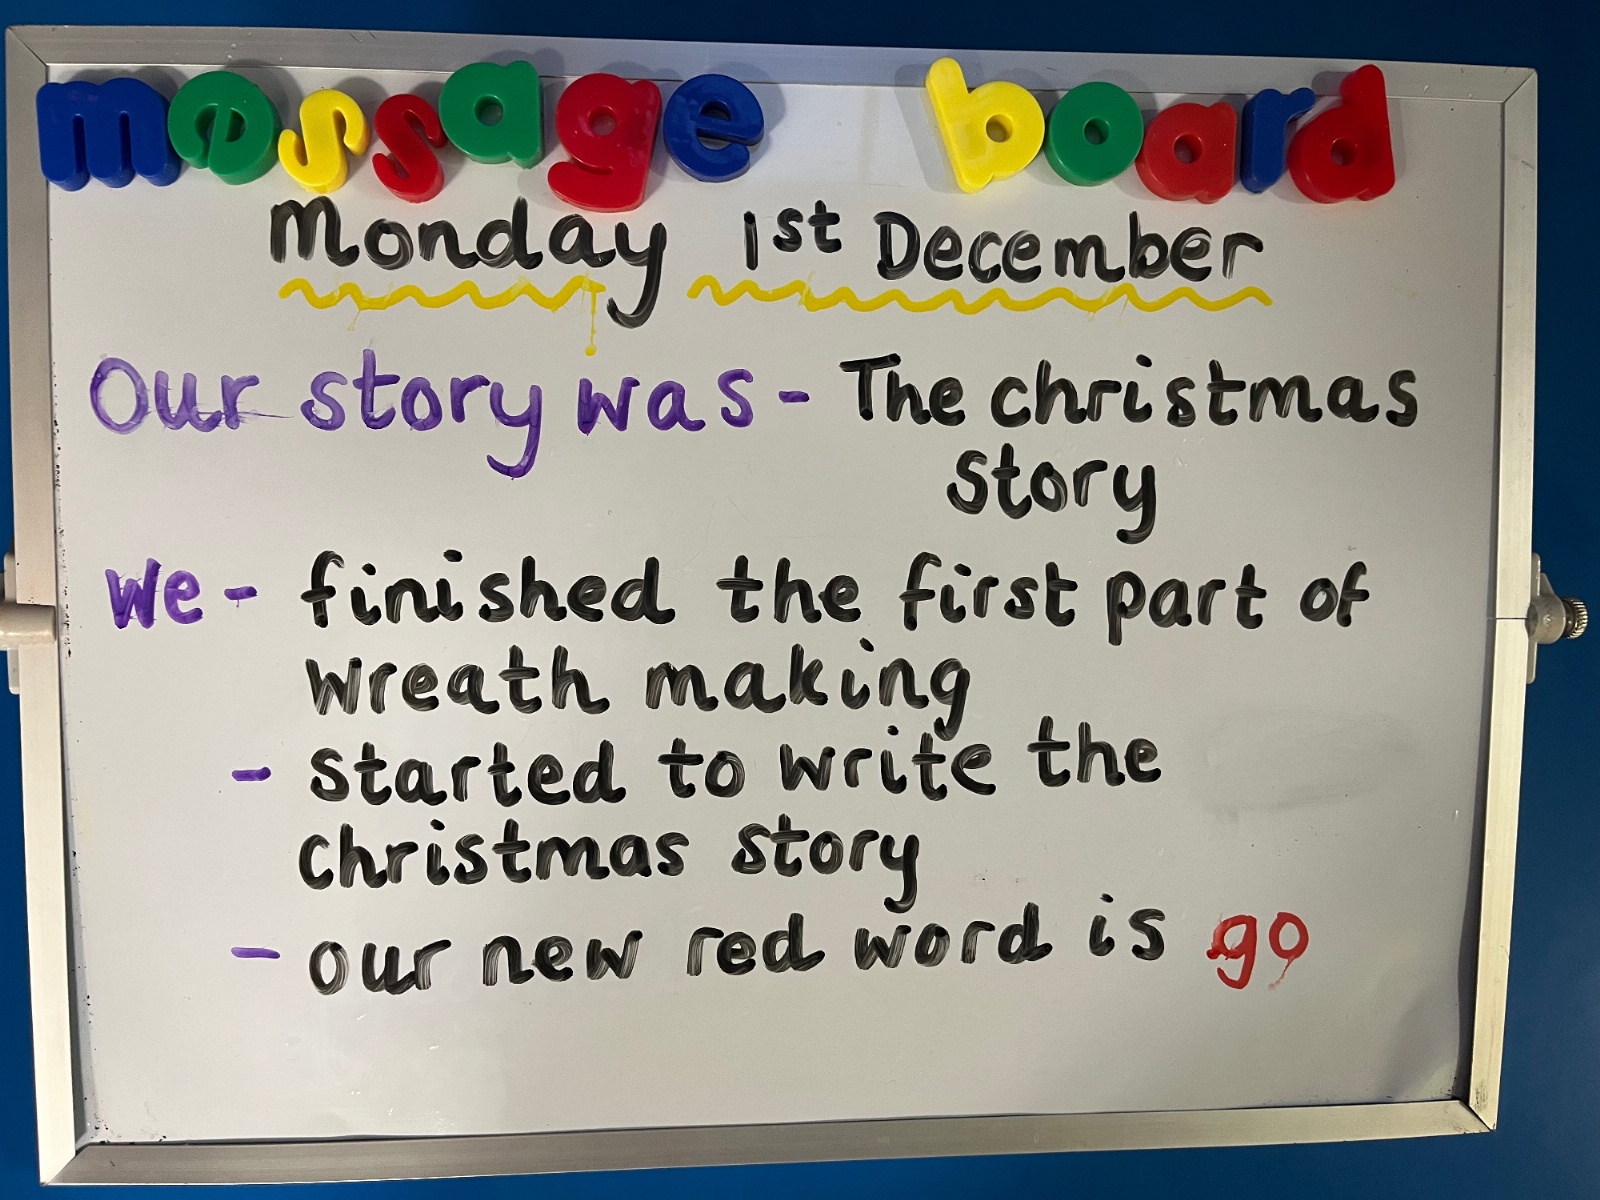 message board
Monday 1st December
Our story was - The christmas
story
We - finished the first part of
wreath making
- started to write the
christmas story
- our new red word is go